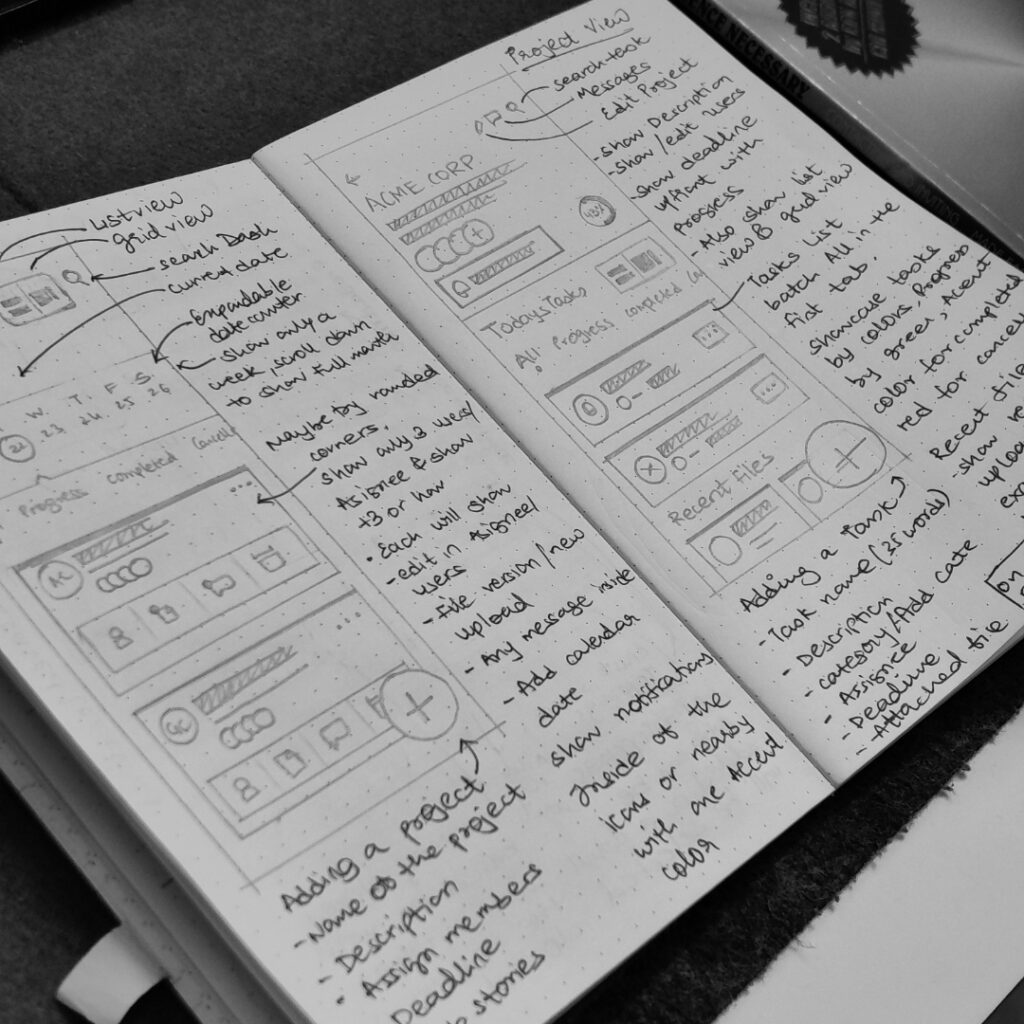 List view
grid view
search Dash
current date
Expandable
date counter
- show only a
week, scroll down
to show full month
W. T. F S.
21 23 24 25 26
Progress completed Cancelle
Maybe by rounded
corners.
show only 3 users/
Asignee & show
+3 or how
• Each will show
- edit in Asignee/
users
- File version/new
upload
- Any message inside
- Add calendar
date
show notifications
Inside of the
icons or nearby
with one Accent
color
AC
Adding a project
- Name of the project
- Description
- Assign members
Deadline
stories
Project View
search task
Messages
Edit Project
- show Description
- show/edit users
- show deadline
with
progress
- Also show list
view & grid view
ACME CORP
Todays Tasks
All Progress completed Ca
Recent Files
Tasks List
batch All in the
first tab.
showcase tasks
by colors, Progress
by green, Accent
color for completed
red for cancel
Recent file
- show re
uploa
ex
Adding a Task
- Task name (35 words)
- Description
- category/Add cate
- Assignee
- Deadline
- Attached file
ENCE NECESSARY